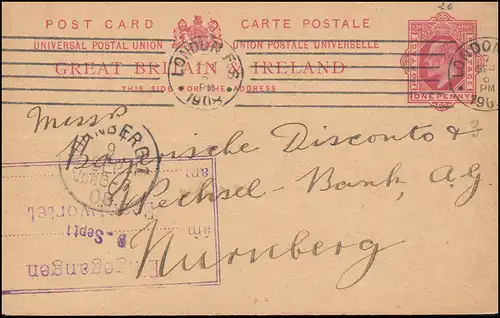 26
POST CARD CARTE POSTALE
UNIVERSAL POSTAL UNION UNION POSTALE UNIVERSELLE
GREAT BRITAIN & IRELAND
THIS SIDE FOR THE ADDRESS
ONE PENNY
LONDON F.S.
PM
1908
LONDON
PM
1908
Messrs
Bayerische Disconto &
Wechsel-Bank, A.G
Nürnberg
3
Eingegangen
8-Sept
am
beantwortet
am